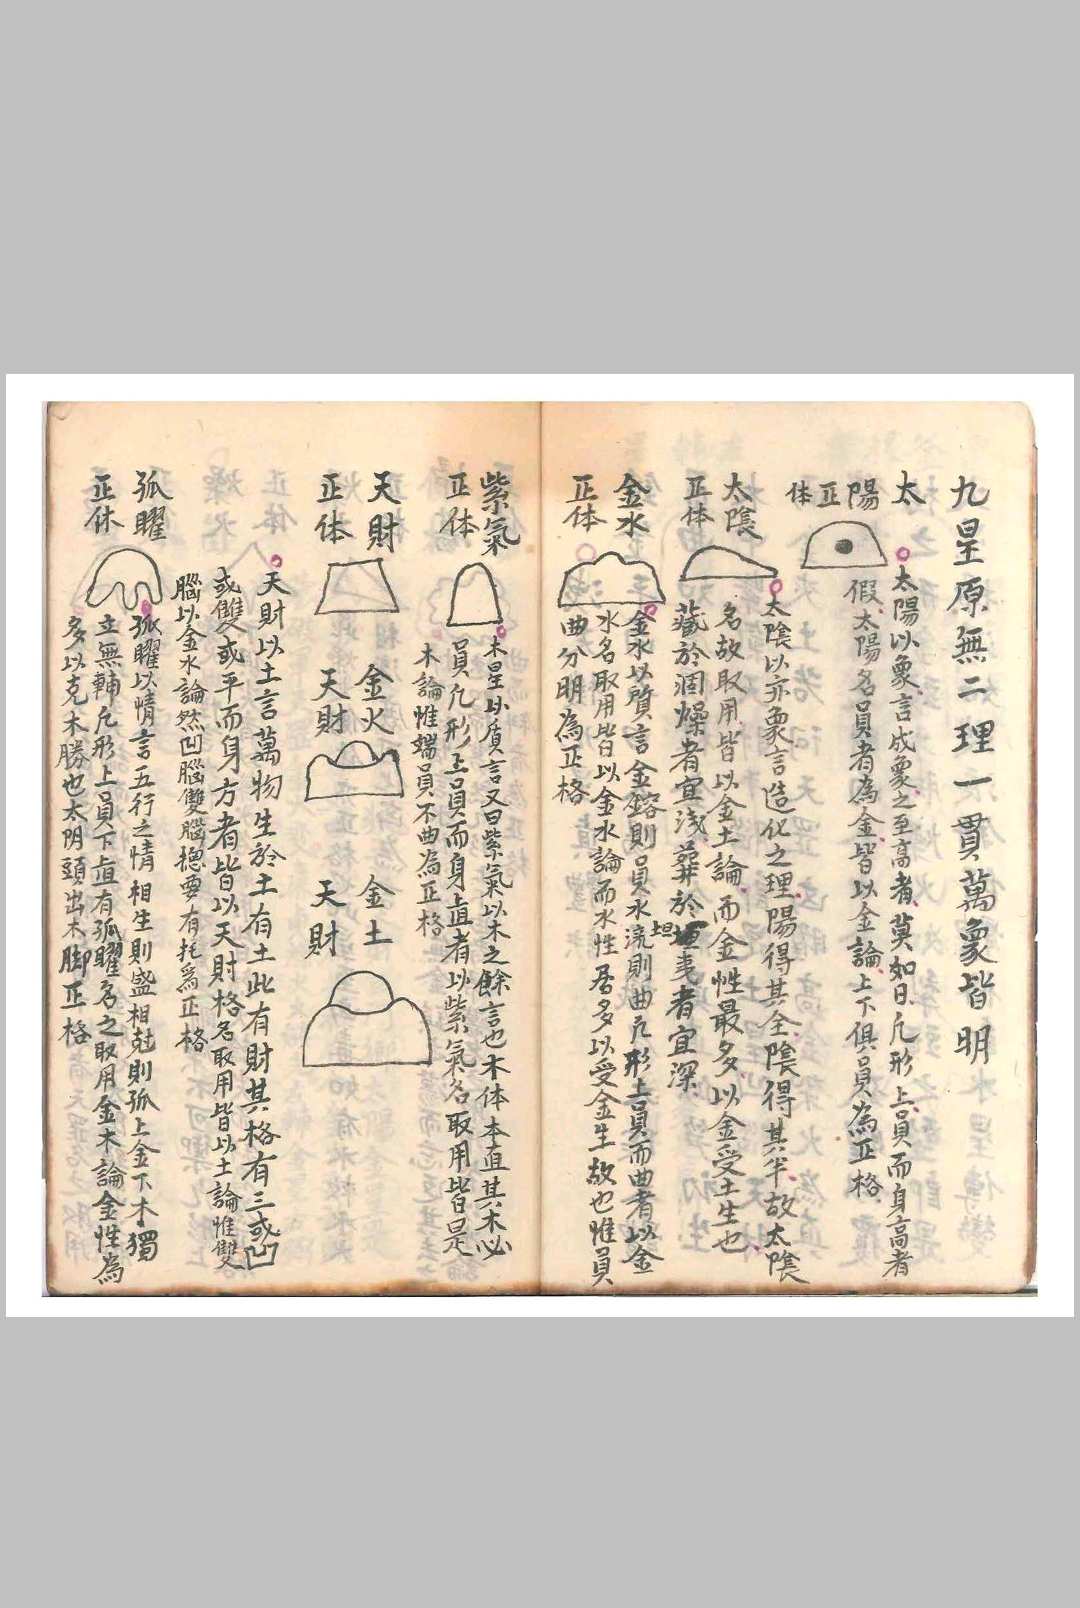 九星原無二理一貫萬象皆明
太陽正体
太陽以象言成象之至高者莫如日凢形上員而身高者
假太陽名員者為金皆以金論上下俱員為正格
太陰
正体
太陰以亦象言造化之理陽得其全陰得其半故太陰
名故取用皆以金土論而金性最多以金受土生也
藏於涸燥者宜浅葬於坦夷者宜深
金水
正体
金水以質言金鎔則員水流則曲凢形上員而曲者以金
水名取用皆以金水論而水性居多以受金生故也惟員
曲分明為正格
紫氣
正体
木星以质言又曰紫氣以木之餘言也木体本直其木必
員凢形上員而身直者以紫氣名取用皆是
木論惟端員不曲為正格
天財
正体
金火
天財
金土
天財
天財以土言萬物生於土有土此有財其格有三或凹
或雙或平而身方者皆以天財格名取用皆以土論惟雙
腦以金水論然凹腦雙腦摠要有托爲正格
孤曜
正体
孤曜以情言五行之情相生則盛相尅則孤上金下木獨
立無輔凢形上員下直有孤曜名之取用金木論金性為
多以克木勝也太阴頭出木脚正格